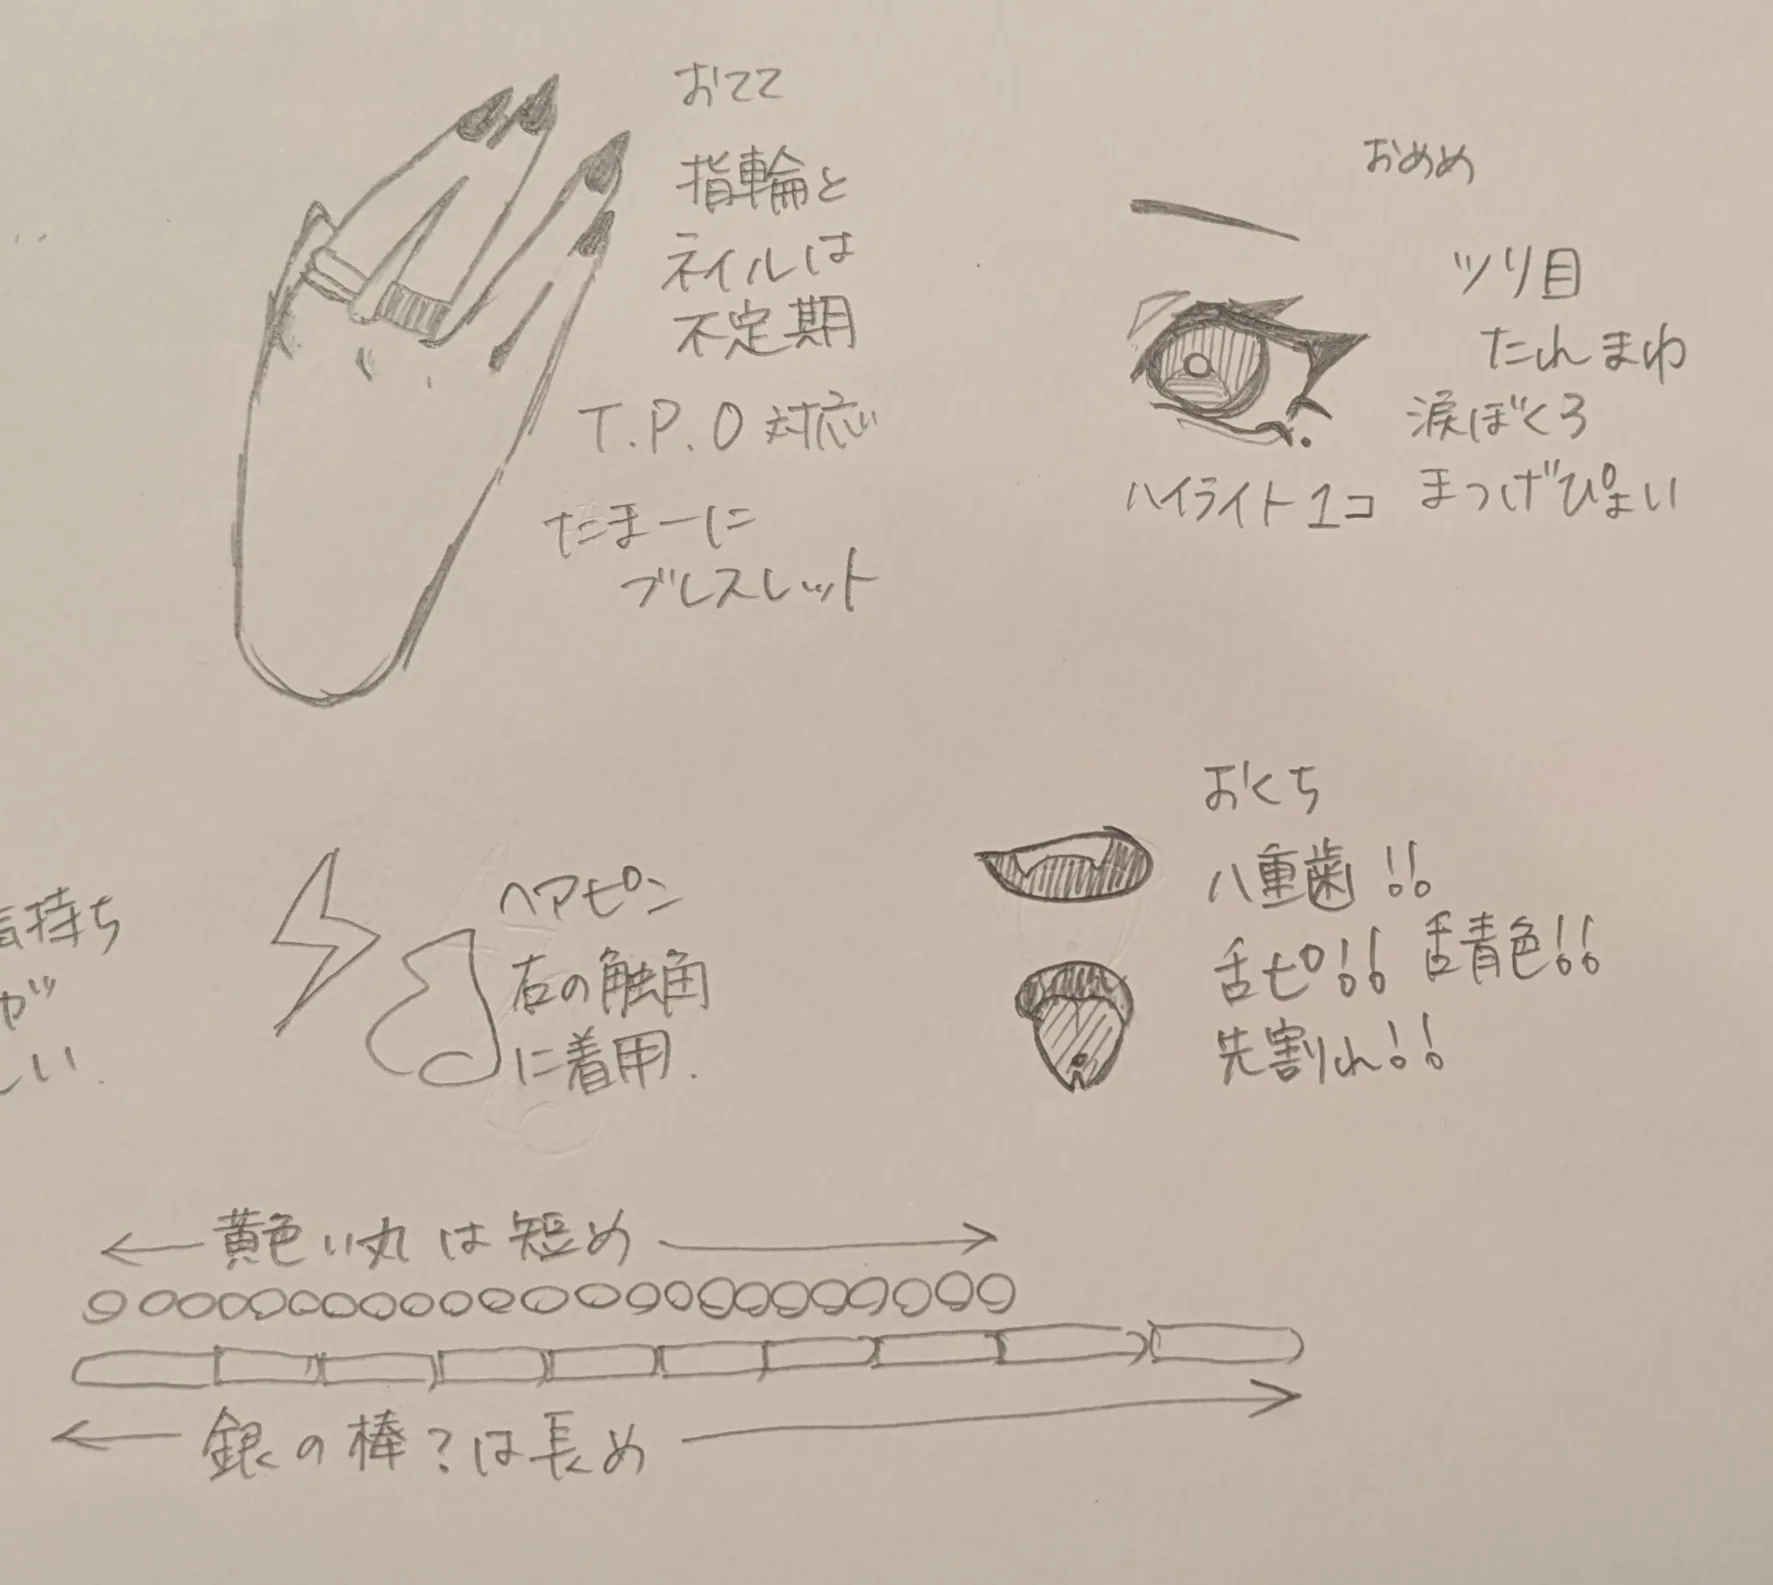 おてて
指輪と
ネイルは
不定期
T.P.O 対応
たまーに
ブレスレット
おめめ
ツリ目
たれまゆ
涙ぼくろ
まつげぴょい
ハイライト1コ
持ち
が
い.
ヘアピン
右の触角
に着用.
おくち
八重歯!!
舌ピ!! 舌青色!!
先割れ!!
黄色い丸は短め
銀の棒?は長め